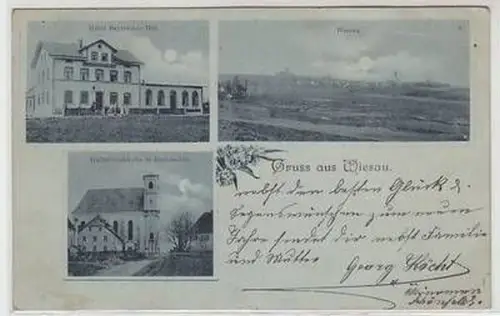 Hôtel Bayrischer Hof.
Wiesau.
Gruss aus Wiesau.
nebst den besten Glück &
Segenswünschen zum neuen
Jahre sendet dir nebst Familie
und Mutter
Georg